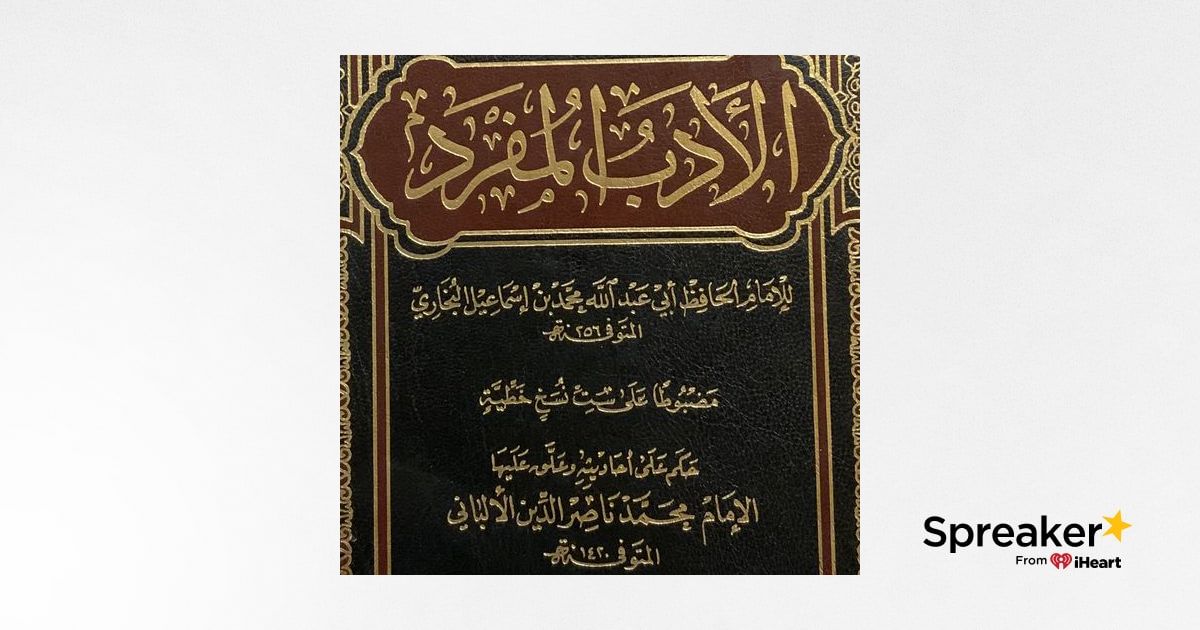 الأَدَبُ المُفْرَد
لِلإِمَامِ الحَافِظْ أَبِي عَبْدِ اللَّه مُحَمَّد بْنْ إِسْمَاعِيل البُخَارِيّ
المتوفى ٢٥٦هـ
مَضْبُوطًا عَلَى سَتِّ نُسَخٍ خَطِّيَّةٍ
حَكَم عَلَى أحَادِيثِهِ وَعَلَّق عَلَيهَا
الإِمَامْ مُحَمَّدْ نَاصِرُ الدِّين الأَلبَانِي
المتوفى ١٤٢٠هـ
Spreaker
From iHeart